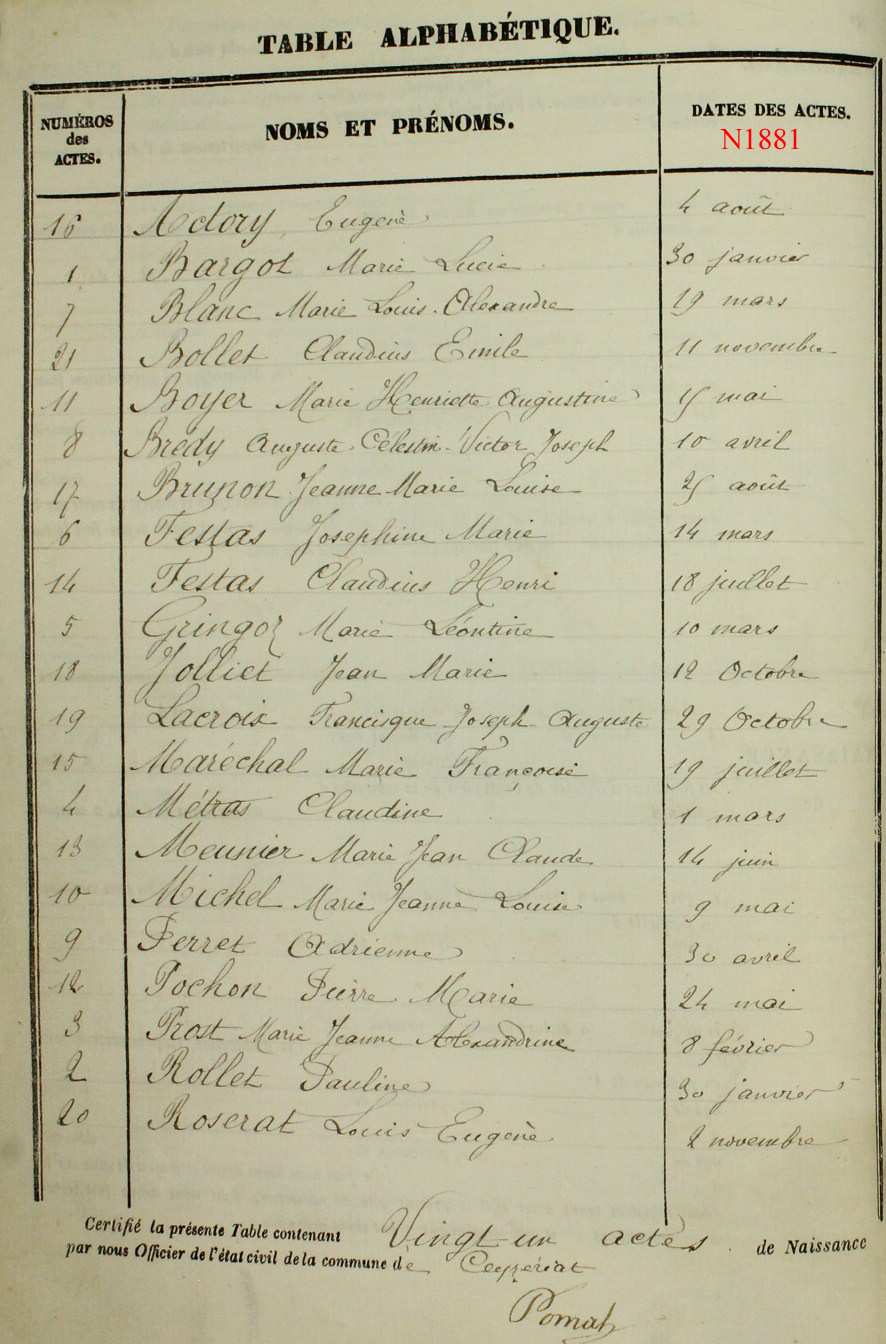 TABLE ALPHABÉTIQUE.
NUMÉROS des ACTES. NOMS ET PRÉNOMS. DATES DES ACTES.
N1881
16 Adory Eugène 4 août
1 Bargot Marie Lucie 30 janvier
7 Blanc Marie Louis Alexandre 19 mars
21 Bollet Claudius Emile 11 novembre
11 Boyer Marie Henriette Augustine 15 mai
8 Brédy Auguste Célestin Victor Joseph 10 avril
17 Brunon Jeanne Marie Louise 25 août
6 Festas Josephine Marie 14 mars
14 Festas Claudius Henri 18 juillet
5 Gringoz Marie Léontine 10 mars
18 Jolliet Jean Marie 12 Octobre
19 Lacroix Francisque Joseph Auguste 29 Octobre
15 Maréchal Marie Françoise 19 juillet
4 Métras Claudine 1 mars
13 Meunier Marie Jean Claude 14 juin
10 Michel Marie Jeanne Louise 9 mai
9 Perret Adrienne 30 avril
12 Pochon Pierre Marie 24 mai
3 Prost Marie Jeanne Alexandrine 8 février
2 Rollet Pauline 30 janvier
20 Roserat Louis Eugène 2 novembre
Certifié la présente Table contenant Vingt-un actes de Naissance
par nous Officier de l'état civil de la commune de Ceyzériat